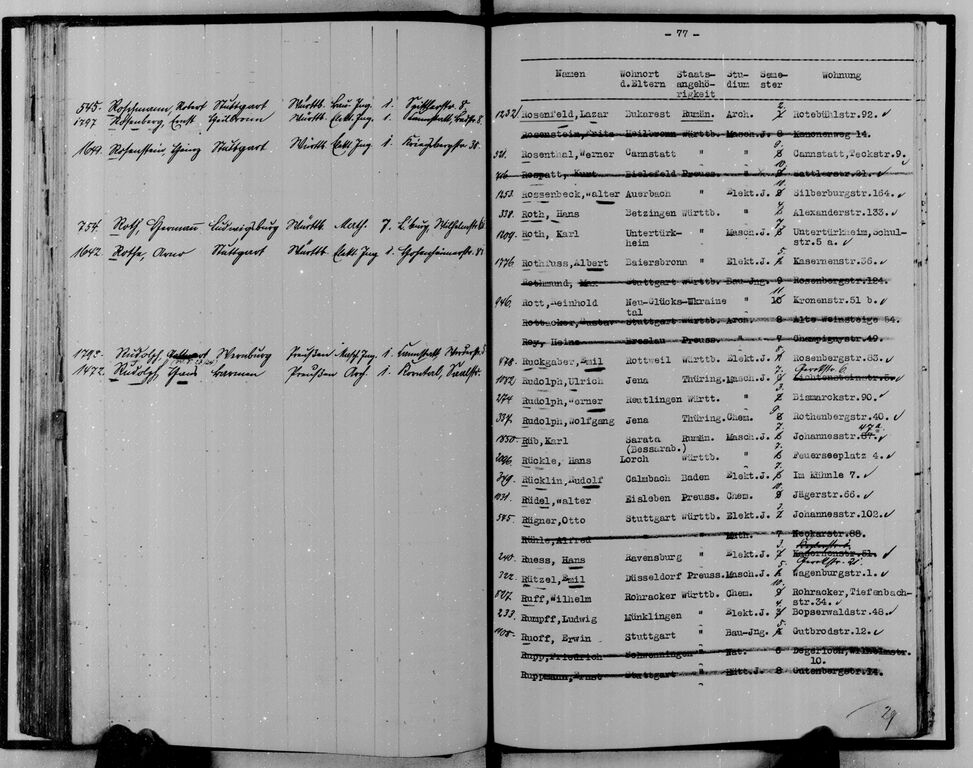 545. Roschmann, Robert Stuttgart Württb. Bau Ing. 1.
1797 Rosenberg, Ernst Heilbronn Württb. Elekt. Ing 1.
1649. Rosenstein, Stuttgart Württb. Elekt. Ing 1. Kriegsbergstr 38.
754. Roth, Hermann Ludwigsburg Württb. Math. 7. L.burg, Wilhelmstr.
1642. Rothe, Arno Stuttgart Württb. Elekt. Ing 1.
1793. Rudolph, Bernburg Preußen Masch. Ing. 1.
1472. Rudolph, Hans Barmen Preußen Arch. 1. Korntal, Saalstr.
- 77 -
Namen Wohnort Staats- Stu- Seme- Wohnung
d.Eltern angehö- dium ster
rigkeit
1232 Rosenfeld, Lazar Bukarest Rumän. Arch. 2. Rotebühlstr.92.
Rosenstein, Fritz Heilbronn Württb. Masch.J. 8 Kanonenweg 14.
521. Rosenthal, Werner Cannstatt " " 9. Cannstatt, Teckstr.9.
Rospatt, Kurt Bielefeld Preuss. " Sattlerstr.21.
1253. Rossenbeck, Walter Auerbach " Elekt.J. Silberburgstr.164.
338. Roth, Hans Betzingen Württb. " Alexanderstr.133.
1209. Roth, Karl Untertürk- " Masch.J. Untertürkheim, Schul-
heim str.5 a.
1776. Rothfuss, Albert Baiersbronn " Elekt.J. 5. Kasernenstr.36.
Rothmund, Max Stuttgart Württb. Bau-Jng. 9 Rosenbergstr.124.
946. Rott, Reinhold Neu-Glücks- Ukraine " 11. Kronenstr.51 b.
tal
Rotbacker, Gustav Stuttgart Württb. Arch. 8 Alte Weinsteige 54.
Roy, Heinz Breslau Preuss. " 7 Champignystr.49.
478. Ruckgaber, Emil Rottweil Württb. Elekt.J. Rosenbergstr.63.
1082. Rudolph, Ulrich Jena Thüring. Masch.J. 7. Lichtensteinstr.5. Gerokstr. 6.
274 Rudolph, Werner Reutlingen Württ. " 3. Bismarckstr.90.
337. Rudolph, Wolfgang Jena Thüring. Chem. 9. Rothenbergstr.40.
1850. Rüb, Karl Sarata Rumän. Masch.J. 7. Johannesstr. 47a
(Bessarab.)
2096. Rückle, Hans Lorch Württb. " 7. Feuerseeplatz 4.
349. Rücklin, Rudolf Calmbach Baden Elekt.J. 7. Im Kühnle 7.
1031. Rüdel, Walter Eisleben Preuss. Chem. 10. Jägerstr.66.
585. Rügner, Otto Stuttgart Württb. Elekt.J. 3. Johannesstr.102.
Rühle, Alfred " " Math. 7 Neckarstr.88.
240. Ruess, Hans Ravensburg " Elekt.J. 3. Kasernenstr.51. Gerokstr. 2.
322. Rützel, Emil Düsseldorf Preuss. Masch.J. 5. Wagenburgstr.1.
507. Ruff, Wilhelm Rohracker Württb. Chem. 10. Rohracker, Tiefenbach-
str.34.
233. Rumpff, Ludwig Münklingen " Elekt.J. 4. Bopserwaldstr.48
1108. Ruoff, Erwin Stuttgart " Bau-Jng. 5. Gutbrodstr.12.
Rupp, Friedrich Schwenningen " Nat. 6 Degerloch, Wilhelmstr.
10.
Ruppmann, Ernst Stuttgart " Hütt.J. 8 Gutenbergstr.14.
29